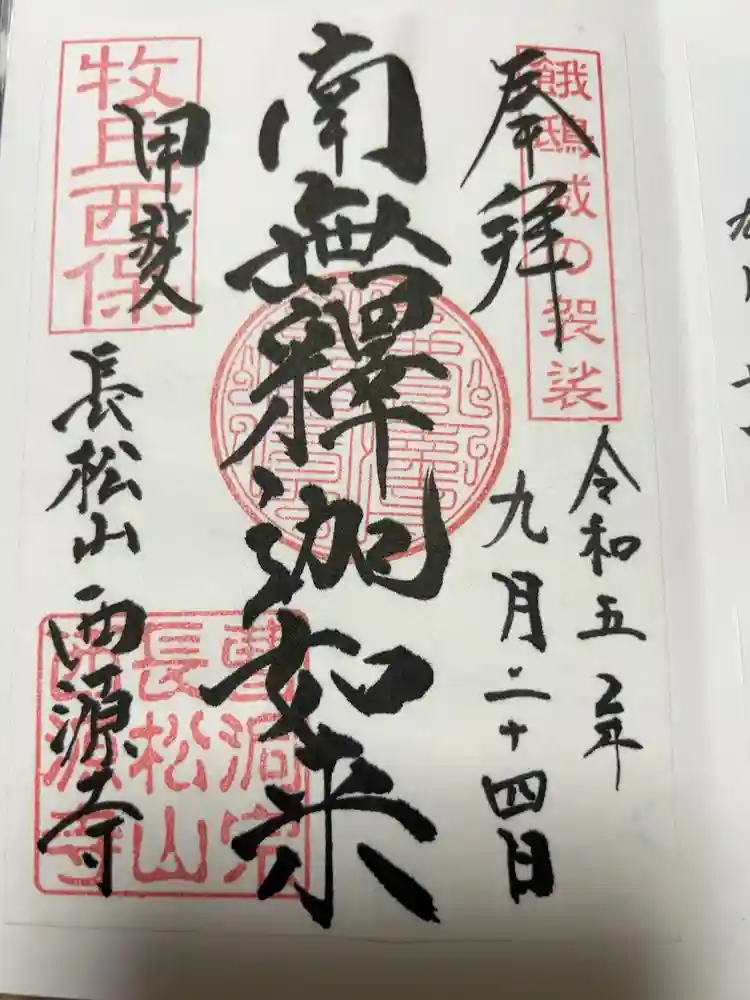 奉拝
餓鴟威の袈裟
令和五年
九月二十四日
南無釋迦如来
甲斐
牧丘西保
長松山 西源寺
曹洞宗
長松山
西源寺